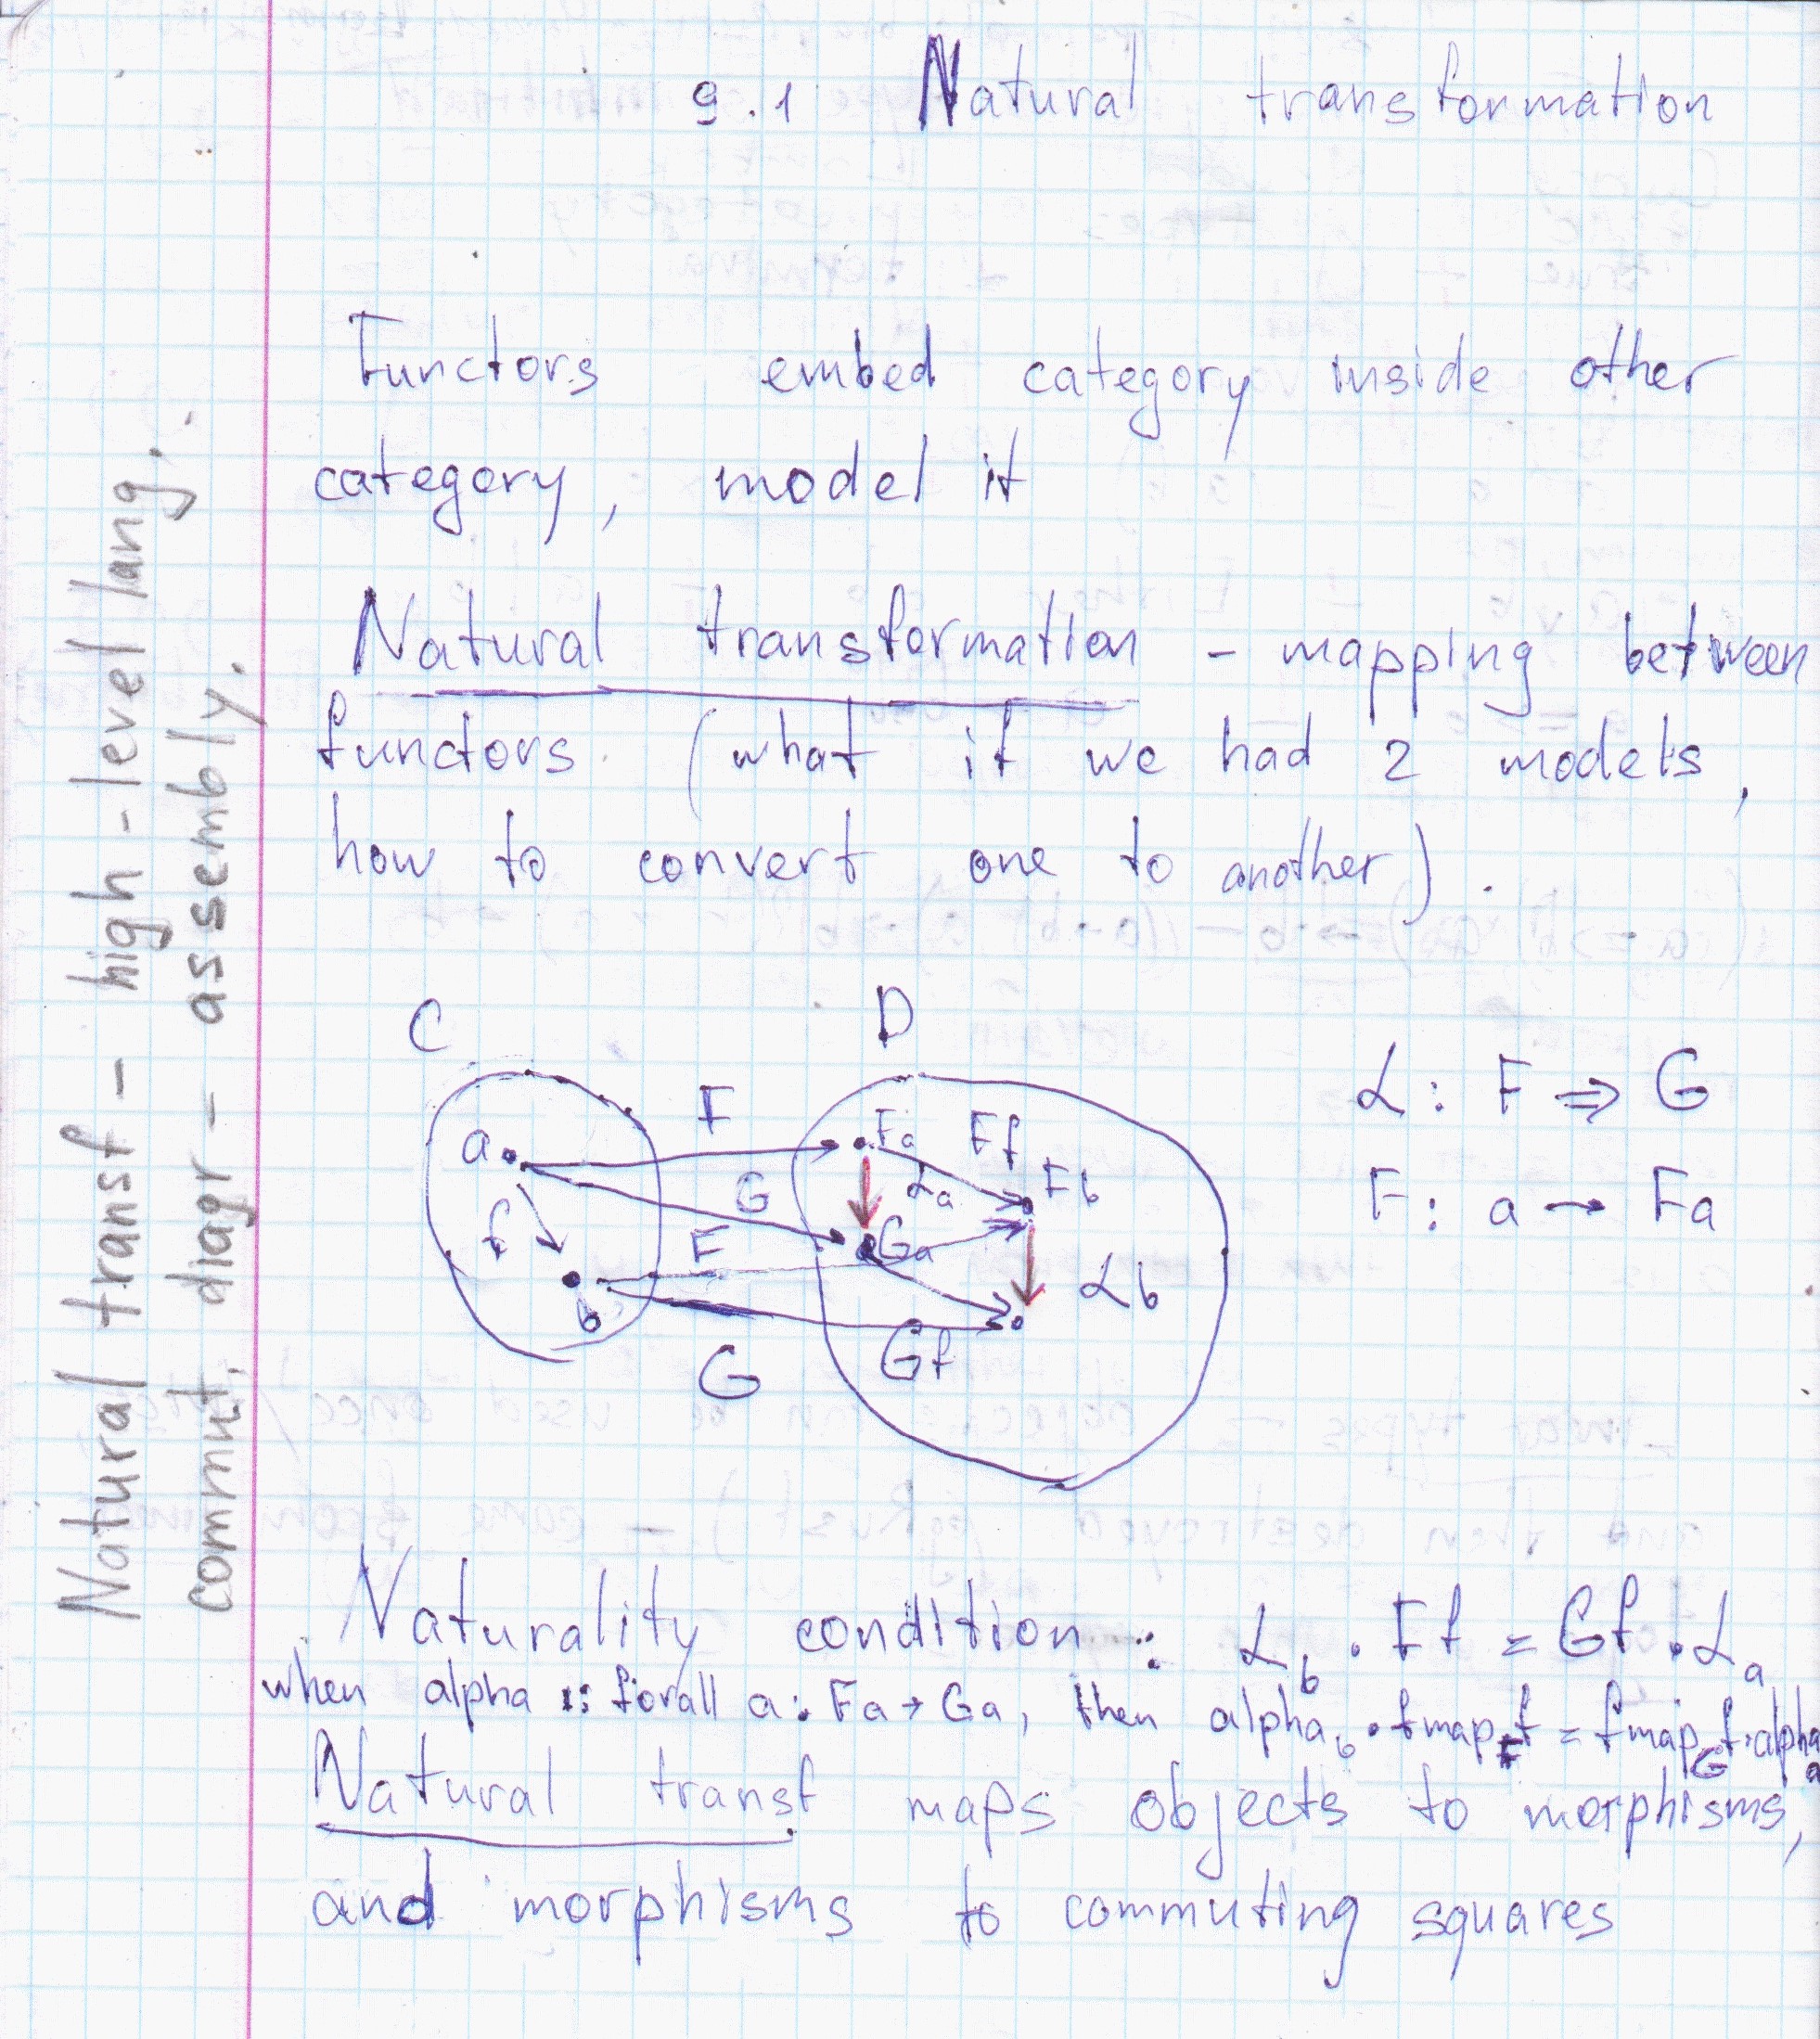 9.1 Natural transformation
Functors embed category inside other
category, model it
Natural transformation - mapping between
functors. (what if we had 2 models,
how to convert one to another).
C D
F
a Fa Ff
G α_a Fb
f F Ga
b α_b
G Gf
α: F ⇒ G
F: a → Fa
Naturality condition: α_b . Ff = Gf . α_a
when alpha :: forall a. Fa → Ga, then alpha_b . fmap_F f = fmap_G f . alpha_a
Natural transf maps objects to morphisms,
and morphisms to commuting squares
Natural transf - high-level lang.
commut. diagr - assembly.